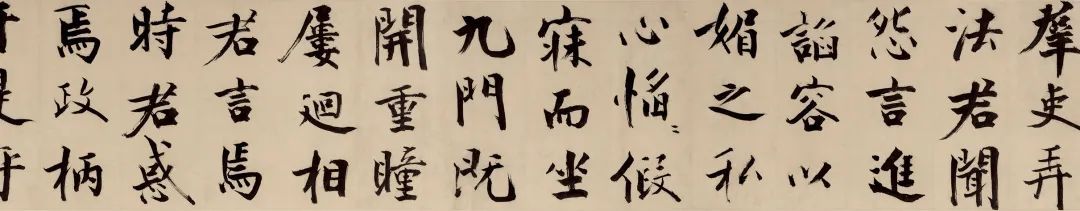 羣吏弄
法君聞
怨言進
諂容以
媚之私
心慆〻假
寐而坐
九門既
開重瞳
屢迴相
君言焉
時君惑
焉政柄
于是乎